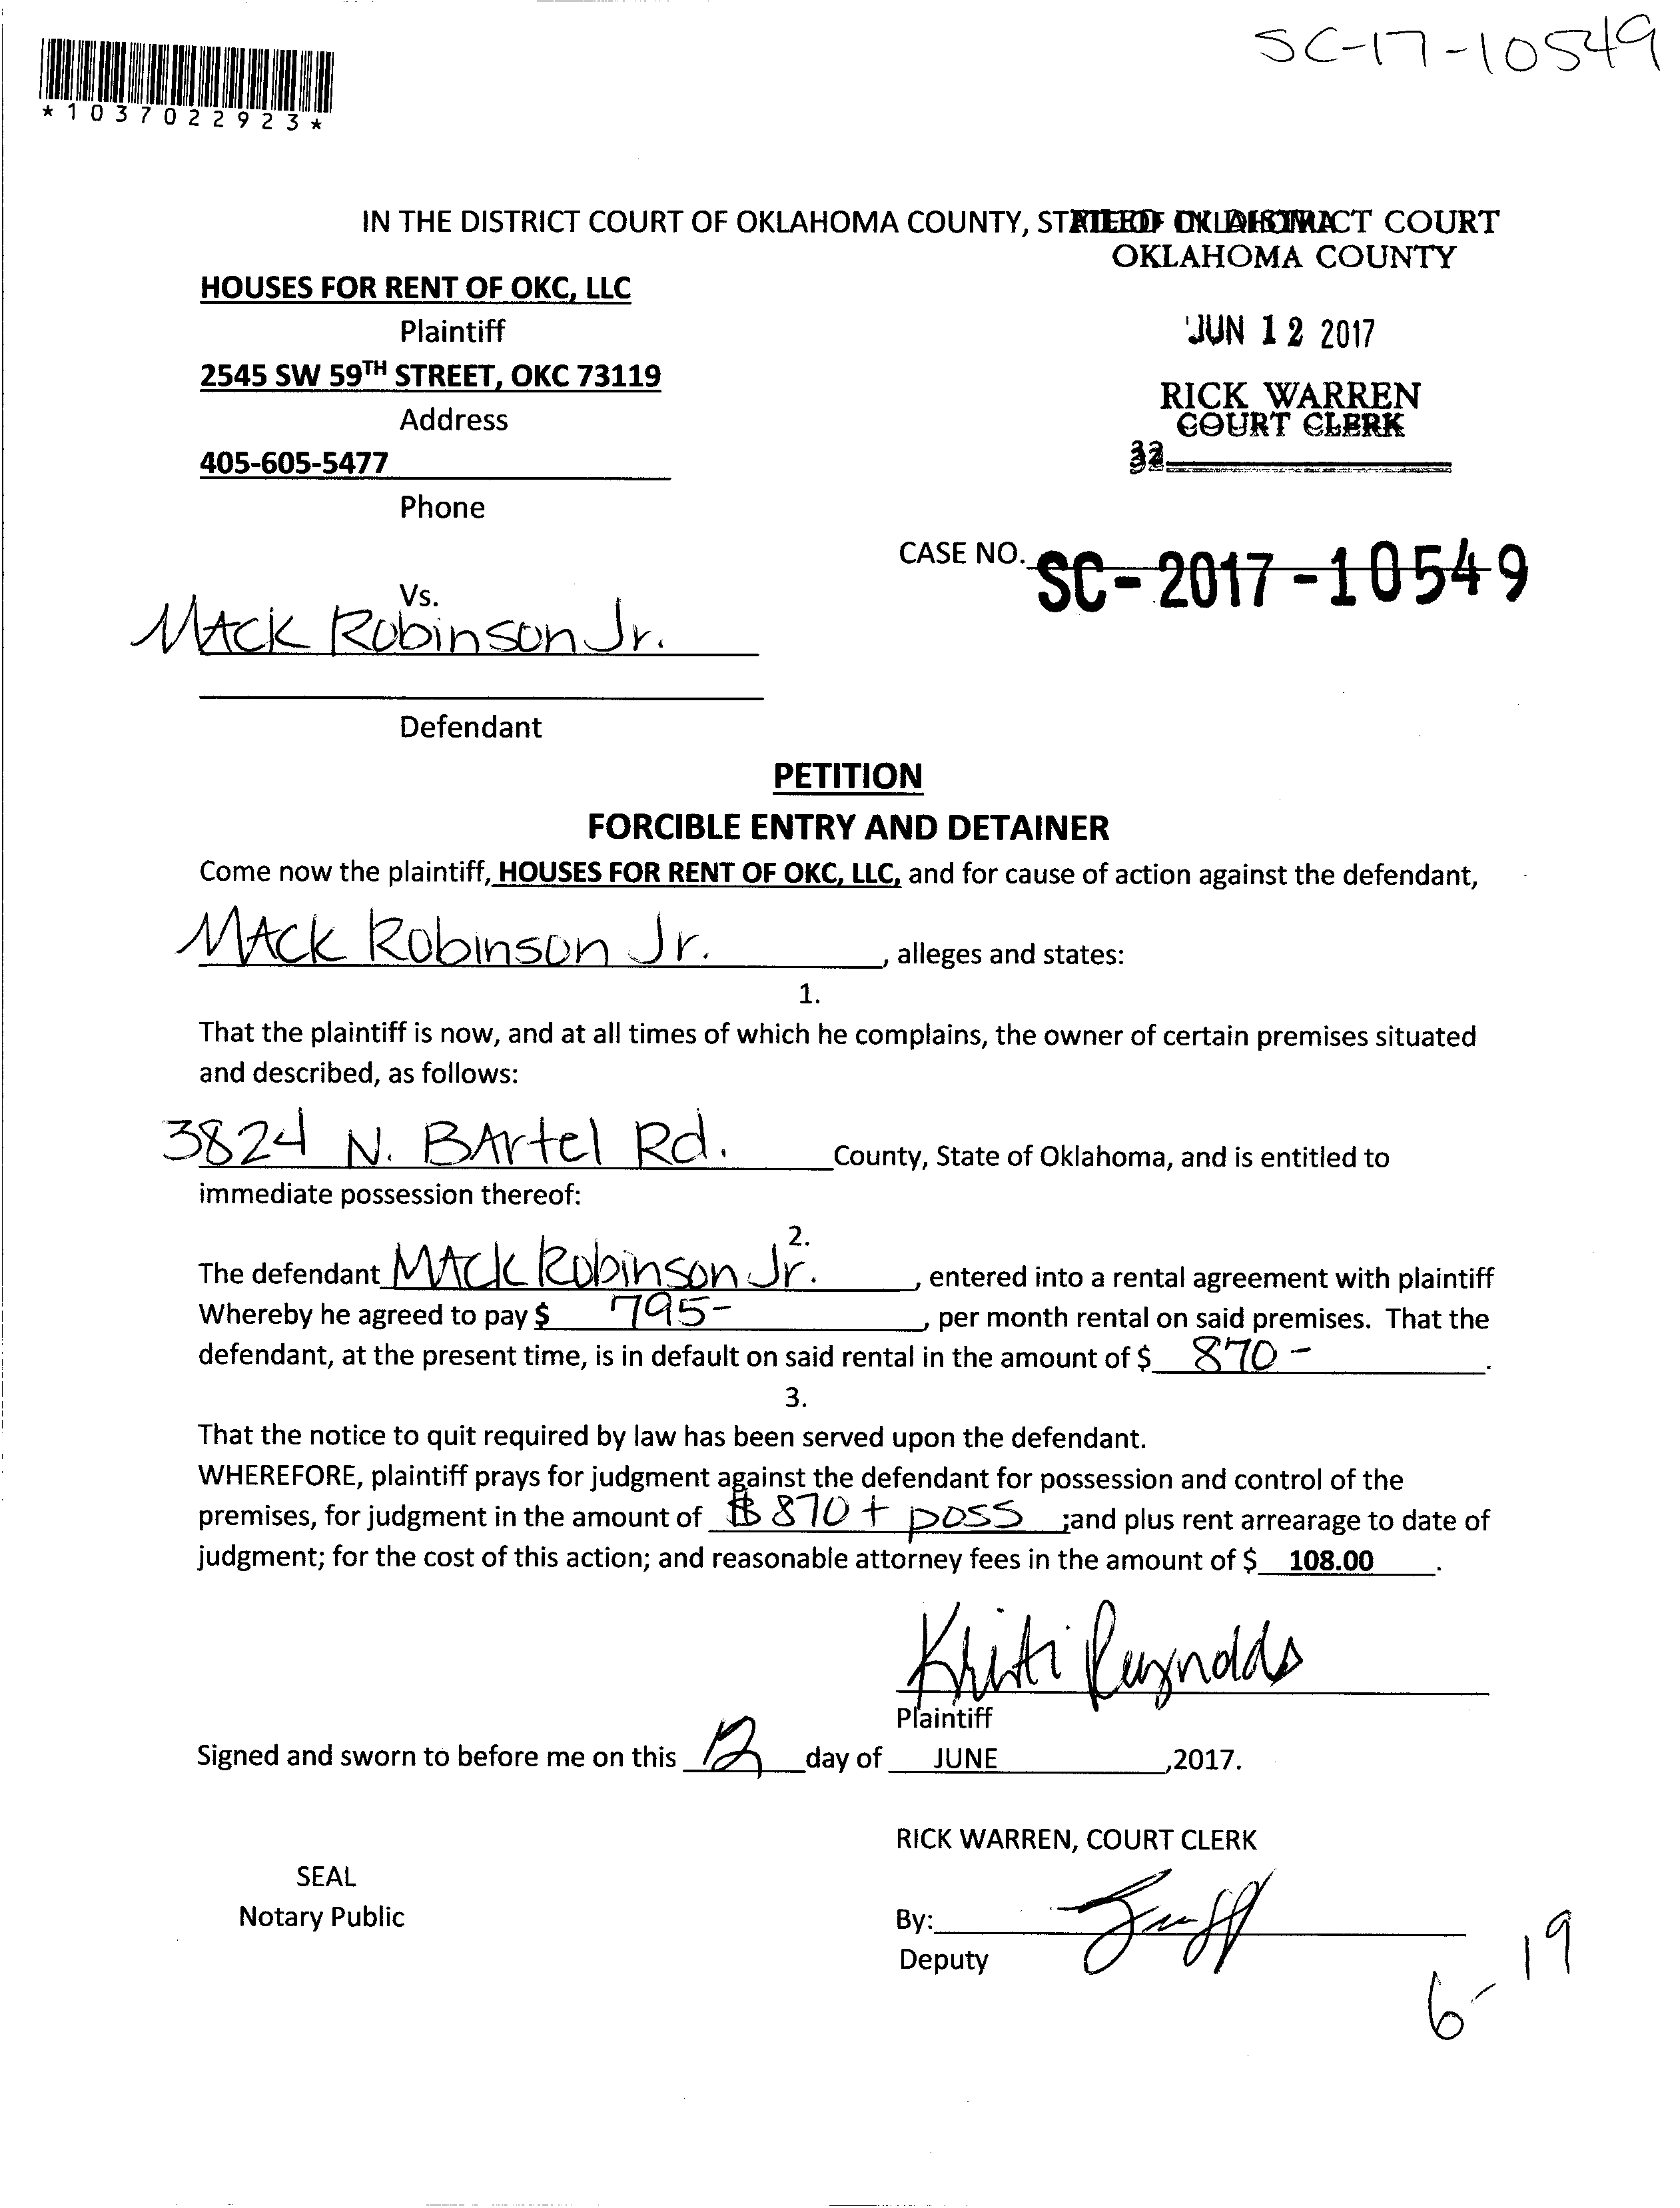 SC-17-10549
*1037022923*
IN THE DISTRICT COURT OF OKLAHOMA COUNTY, STATE OF OKLAHOMA
FILED IN DISTRICT COURT
OKLAHOMA COUNTY
HOUSES FOR RENT OF OKC, LLC
Plaintiff
JUN 12 2017
2545 SW 59TH STREET, OKC 73119
Address
RICK WARREN
COURT CLERK
405-605-5477
32
Phone
CASE NO. SC-2017-10549
Vs.
Mack Robinson Jr.
Defendant
PETITION
FORCIBLE ENTRY AND DETAINER
Come now the plaintiff, HOUSES FOR RENT OF OKC, LLC, and for cause of action against the defendant,
Mack Robinson Jr. , alleges and states:
1.
That the plaintiff is now, and at all times of which he complains, the owner of certain premises situated
and described, as follows:
3824 N. BArtel Rd. County, State of Oklahoma, and is entitled to
immediate possession thereof:
2.
The defendant Mack Robinson Jr. , entered into a rental agreement with plaintiff
Whereby he agreed to pay $ 795- , per month rental on said premises. That the
defendant, at the present time, is in default on said rental in the amount of $ 870- .
3.
That the notice to quit required by law has been served upon the defendant.
WHEREFORE, plaintiff prays for judgment against the defendant for possession and control of the
premises, for judgment in the amount of $870 + poss ;and plus rent arrearage to date of
judgment; for the cost of this action; and reasonable attorney fees in the amount of $ 108.00 .
Kristi Reynolds
Plaintiff
Signed and sworn to before me on this 12 day of JUNE ,2017.
RICK WARREN, COURT CLERK
SEAL
Notary Public
By:
Deputy
6-19